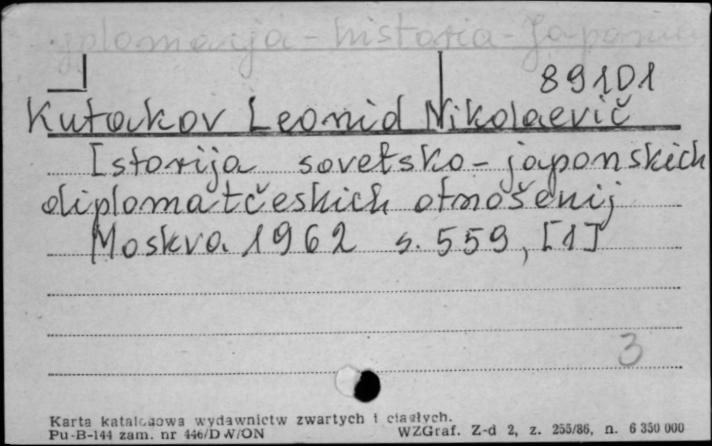 dyplomacja - historia - Japonia
89101
Kutakov Leonid Nikolaevič
Istorija sovetsko-japonskich
diplomatčeskich otnošenij
Moskva 1962 s. 559, [1]
3
Karta katalogowa wydawnictw zwartych i ciągłych.
Pu-B-144 zam. nr 446/DW/ON WZGraf. Z-d 2, z. 255/86, n. 6 350 000